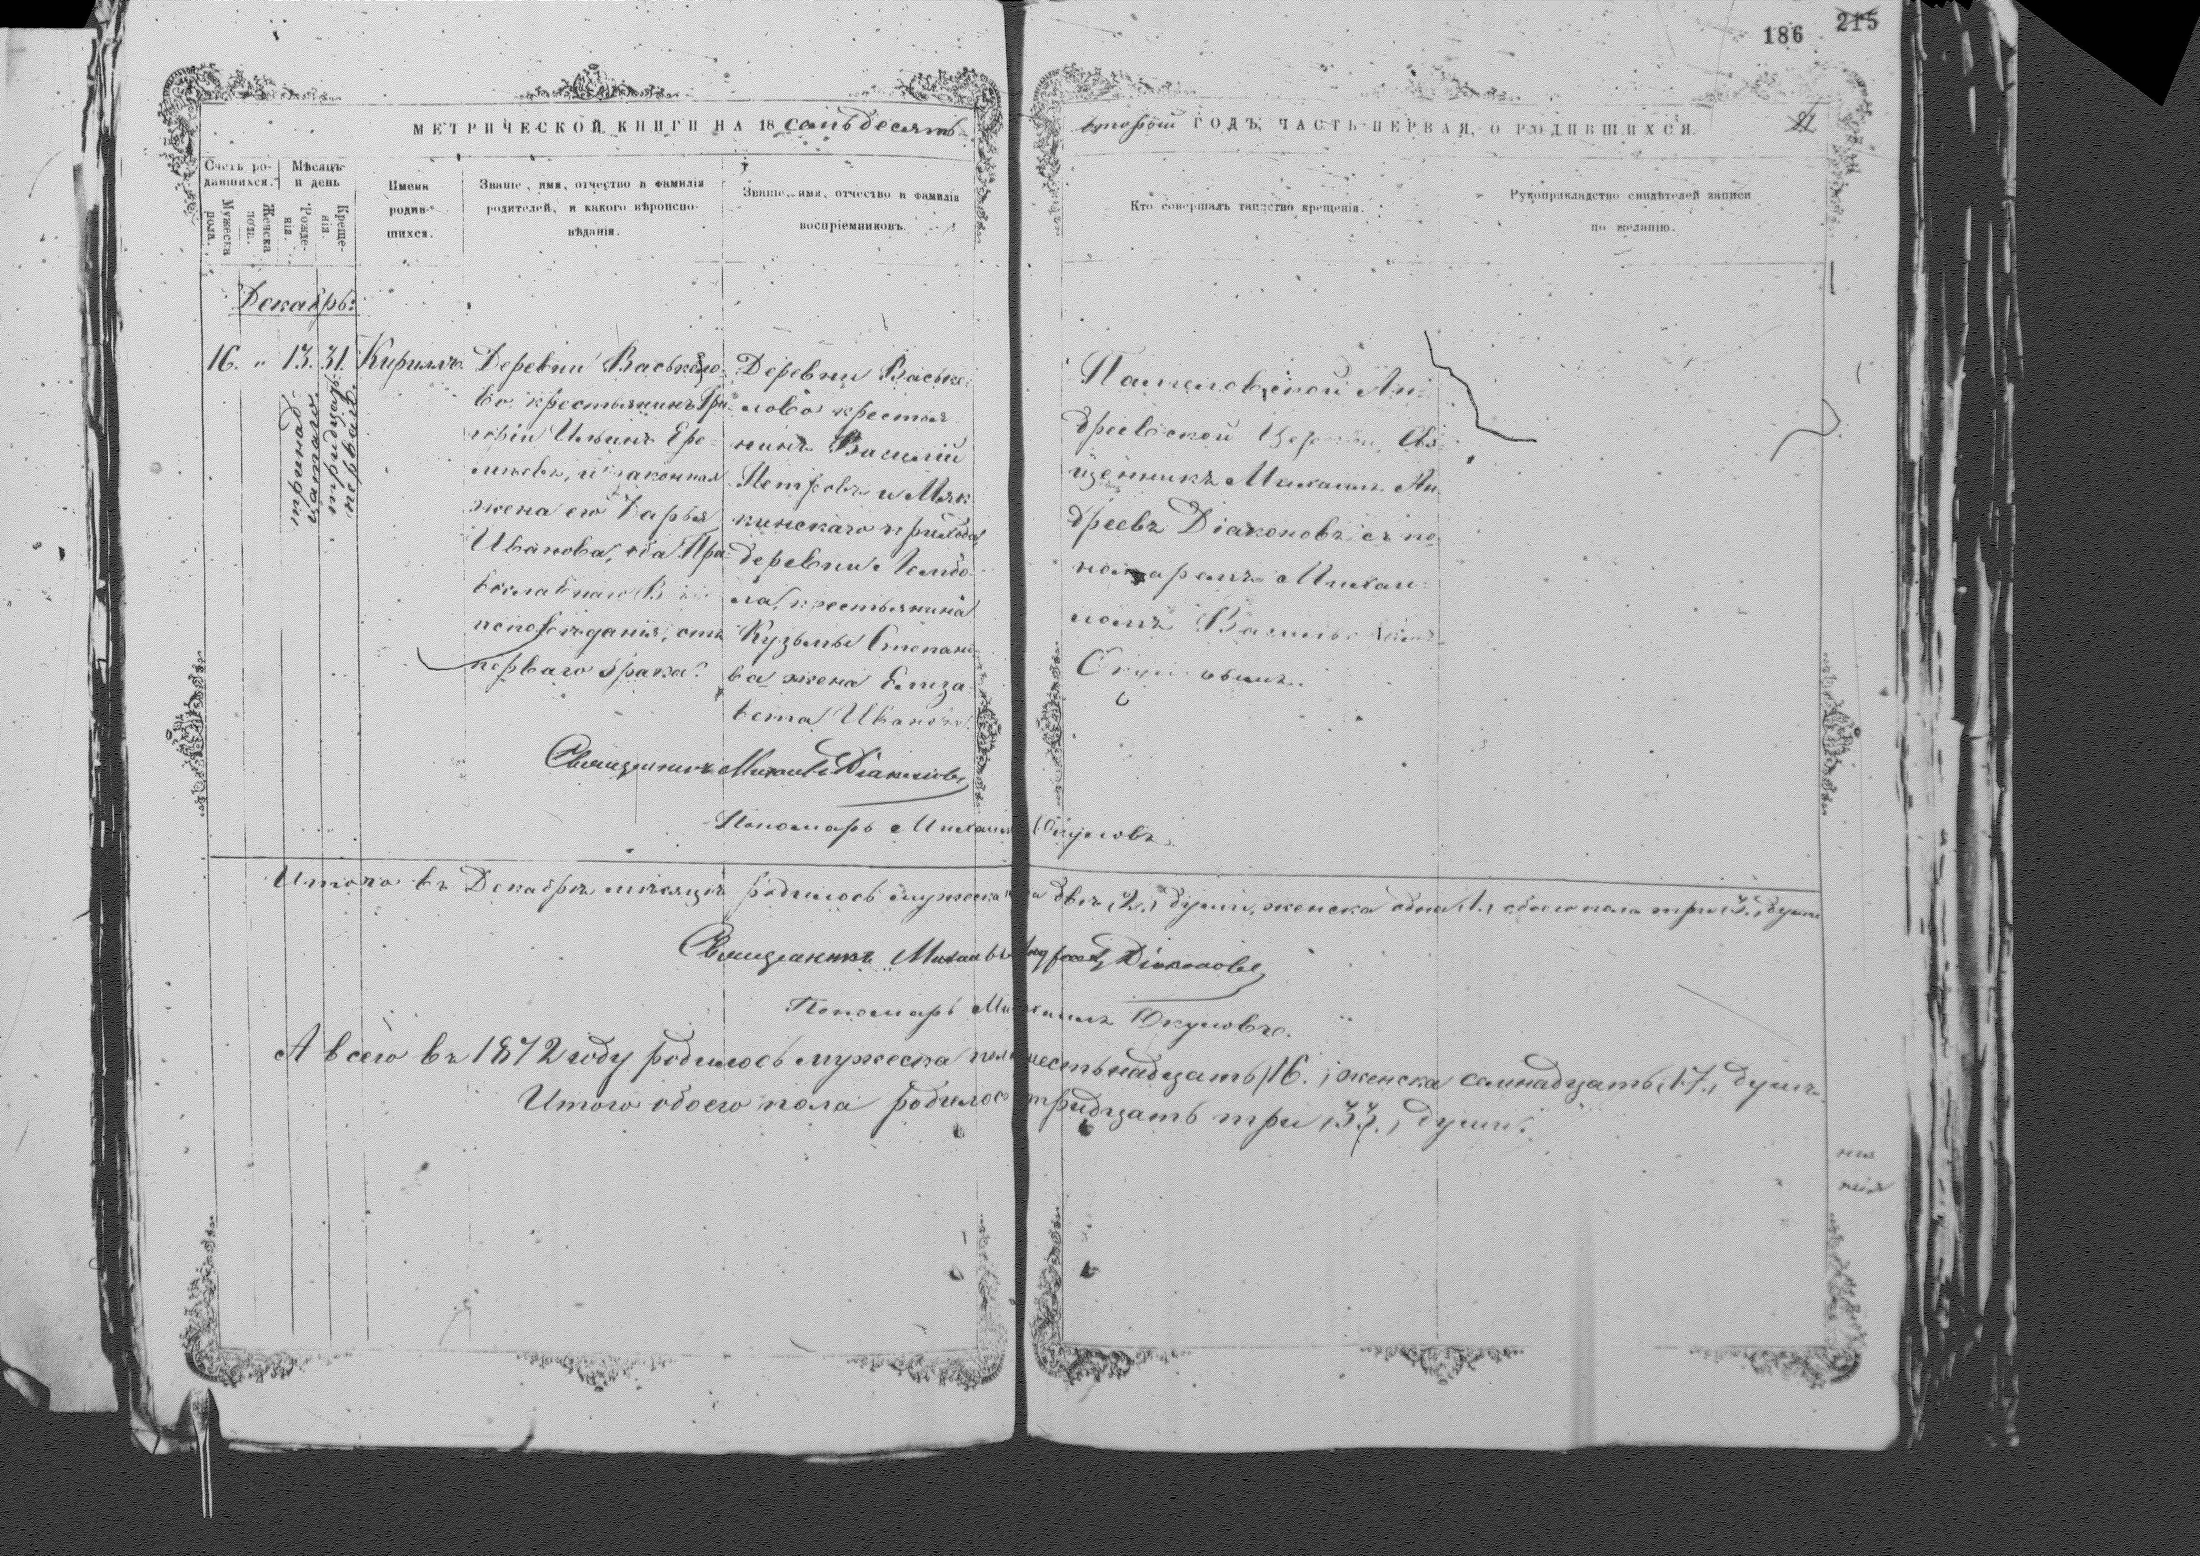 186 215
МЕТРИЧЕСКОЙ КНИГИ НА 18 семьдесятъ
второй ГОДЪ, ЧАСТЬ ПЕРВАЯ, О РОДИВШИХСЯ.
Счетъ ро-
дившихся.
Мужеска
пола.
Женска
пола.
Мѣсяцъ
и день
Рожде-
нія.
Креще-
нія.
Имена
родив-
шихся.
Званіе, имя, отчество и фамилія
родителей, и какого вѣроиспо-
вѣданія.
Званіе, имя, отчество и фамилія
воспріемниковъ.
Кто совершалъ таинство крещенія.
Рукоприкладство свидѣтелей записи
по желанію.
Декабрь:
16. „ 13. 31. Кириллъ
тринад-
цатаго
тридцать
перваго
Деревни Васькело-
во крестьянинъ Гри-
горій Ильинъ Ере-
мѣевъ, и законная
жена его Дарья
Иванова, оба Пра-
вославнаго
исповѣданія, отъ
перваго брака.
Деревни Ваське-
лово крестья-
нинъ Василій
Петровъ и Мяк-
кинскаго прихода,
деревни
крестьянина
Кузьмы Степано-
ва жена Елиза-
вета Иванова.
Ан-
дреевской Церкви Свя-
щенникъ Михаилъ Ан-
дреевъ Діаконовъ съ по-
номаремъ Михаи-
ломъ Васильевымъ
Окуловымъ.
Священникъ Михаилъ Діаконовъ
Пономарь Михаилъ Окуловъ.
Итого въ Декабрѣ мѣсяцѣ родилось мужеска пола двѣ (2.) души, женска одна (1.) обоего пола три (3.) души
Священникъ Михаилъ Андреевъ Діаконовъ
Пономарь Михаилъ Окуловъ.
А всего въ 1872 году родилось мужеска пола шестьнадцать (16.), женска семнадцать (17.) душъ.
Итого обоего пола родилось тридцать три (33.) души.